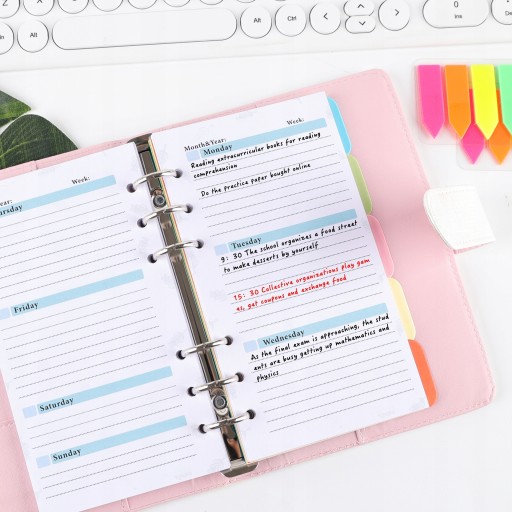 Alt
Alt
Ctrl
0
Ins
Week:
ursday
Friday
Saturday
Sunday
Month&Year:
Week:
Monday
Reading extracurricular books for reading
comprehension
Do the practice paper bought online
Tuesday
9: 30 The school organizes a food street
to make desserts by yourself
15: 30 Collective organizations play gam
es, get coupons and exchange food
Wednesday
As the final exam is approaching, the stud
ents are busy getting up mathematics and
physics